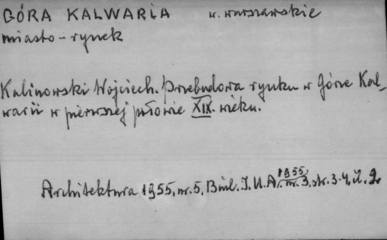 GÓRA KALWARIA w. warszawskie
miasto - rynek
Kalinowski Wojciech. Przebudowa rynku w Górze Kal-
warii w pierwszej połowie XIX. wieku.
Architektura 1955, nr. 5, Biul. I.U.A. 1955 nr. 3, str. 3-4, il. 2